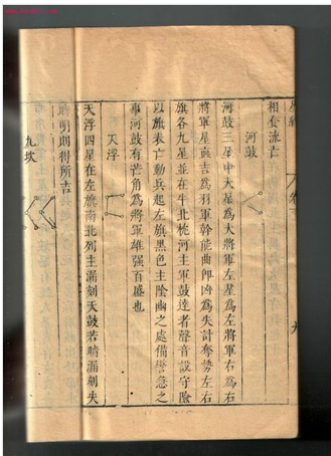 相奎流吉
河鼓
河鼓三星中大星為大將軍左星為左將軍右為右
將軍星直吉為羽軍幹能曲即凶為失計奪勢左右
旗各九星並在牛北枕河主軍鼓達者聲音設守險
以旗表亡動兵起左旗黑色主陰幽之處備警急之
事河鼓有芒角為將軍雄强百盛也
天浮
天浮四星在左旗南北列主漏刻天鼓若暗漏刻失
時明則得所吉
九坎